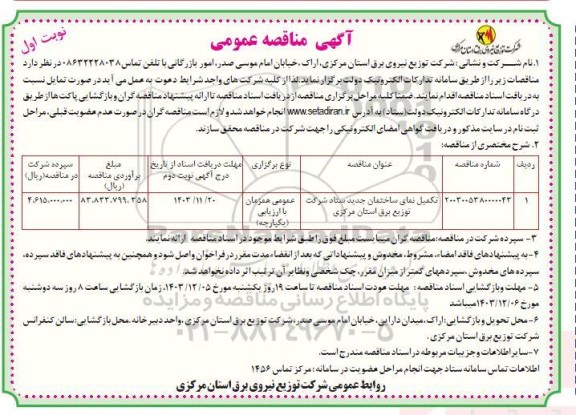 آگهی مناقصه عمومی
نوبت اول
شرکت توزیع نیروی برق استان مرکزی
۱. نام شرکت و نشانی: شرکت توزیع نیروی برق استان مرکزی، اراک، خیابان امام موسی صدر، امور بازرگانی با تلفن تماس ۰۸۶۳۲۲۲۸۰۳۸ در نظر دارد
مناقصات زیر را از طریق سامانه تدارکات الکترونیک دولت برگزار نماید. لذا از کلیه شرکت های واجد شرایط دعوت به عمل می آید در صورت تمایل نسبت
به دریافت اسناد مناقصه اقدام نمایند. ضمنا کلیه مراحل برگزاری مناقصه از دریافت اسناد مناقصه تا ارائه پیشنهاد مناقصه گران و بازگشایی پاکت ها از طریق
درگاه سامانه تدارکات الکترونیک دولت (ستاد) به آدرس www.setadiran.ir انجام خواهد شد و لازم است مناقصه گران در صورت عدم عضویت قبلی، مراحل
ثبت نام در سایت مذکور و دریافت گواهی امضای الکترونیکی را جهت شرکت در مناقصه محقق سازند.
۲. شرح مختصری از مناقصه:
ردیف شماره مناقصه عنوان مناقصه نوع برگزاری مهلت دریافت اسناد از تاریخ درج آگهی نوبت دوم مبلغ برآوردی مناقصه (ریال) سپرده شرکت در مناقصه (ریال)
۱ ۲۰۰۳۰۰۵۳۸۰۰۰۰۰۴۳ تکمیل نمای ساختمان جدید ستاد شرکت توزیع برق استان مرکزی عمومی همزمان با ارزیابی (یکپارچه) ۱۴۰۳/۱۱/۲۰ ۸۳.۸۳۳.۷۹۹.۳۵۸ ۴.۶۱۵.۰۰۰.۰۰۰
۳- سپرده شرکت در مناقصه: مناقصه گران میبایست مبلغ فوق را طبق شرایط موجود در اسناد مناقصه ارائه نمایند.
۴- به پیشنهادهای فاقد امضاء، مشروط، مخدوش و پیشنهاداتی که بعد از انقضاء مدت مقرر در فراخوان واصل شود و همچنین به پیشنهادهای فاقد سپرده،
سپرده های مخدوش، سپرده های کمتر از میزان مقرر، چک شخصی و نظایر آن ترتیب اثر داده نخواهد شد.
۵- مهلت و بازگشایی اسناد مناقصه: مهلت عودت اسناد مناقصه تا ساعت ۱۹ روز یکشنبه مورخ ۱۴۰۳/۱۲/۰۵، زمان بازگشایی ساعت ۸ روز سه دوشنبه
مورخ ۱۴۰۳/۱۲/۰۶ میباشد
۶- محل تحویل و بازگشایی: اراک، میدان دارایی، خیابان امام موسی صدر، شرکت توزیع برق استان مرکزی، واحد دبیرخانه. محل بازگشایی: سالن کنفرانس
شرکت توزیع برق استان مرکزی.
۷- سایر اطلاعات و جزییات مربوطه در اسناد مناقصه مندرج است.
اطلاعات تماس سامانه ستاد جهت انجام مراحل عضویت در سامانه: مرکز تماس ۱۴۵۶
روابط عمومی شرکت توزیع نیروی برق استان مرکزی
پایگاه اطلاع رسانی مناقصه و مزایده
۰۲۱-۸۸۳۴۹۶۷۰-۵